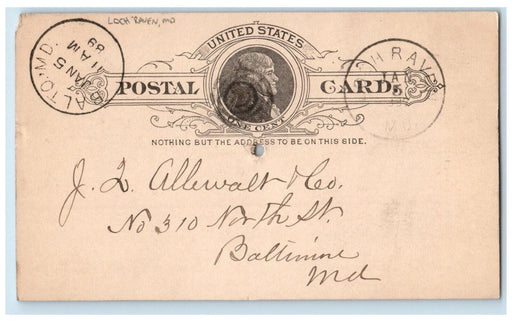 LOCH RAVEN, MD
BALTO. MD.
JAN 5
11 AM
89
UNITED STATES
POSTAL CARD.
ONE CENT
NOTHING BUT THE ADDRESS TO BE ON THIS SIDE.
J. Q. Allewalt & Co.
No 310 North St.
Baltimore
Md